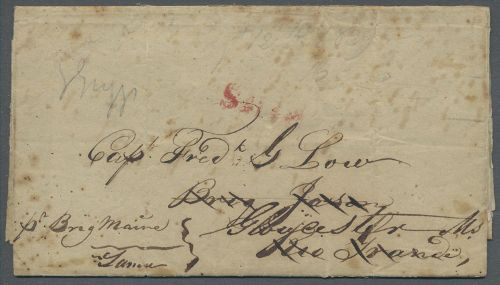 SHIP
Capt. Fredk G Low
Brig Jason
pr Brig Maine
Gloucester Ms
Rio Grande,